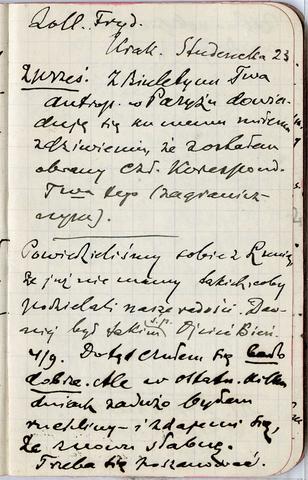 Zoll. Fryd.
Krak. Studencka 23
2/wrześ. Z Biuletynu Twa
antrop. w Paryżu dowia-
duję się ku memu miłemu
zdziwieniu, że zostałem
obrany czł. Korespond.
Twa tego (zagranicz-
nym).
Powiedzieliśmy sobie z
że już nie mamy takich, coby
podzielali nasze radości. Daw-
niej był takim Ojciec
4/9. Dotąd czułem się bardo
dobrze. Ale w ostatn. kilku
dniach zadużo byłem
ruchliwy – i zdaje mi się,
że znowu słabnę.
Trzeba się poszanować.